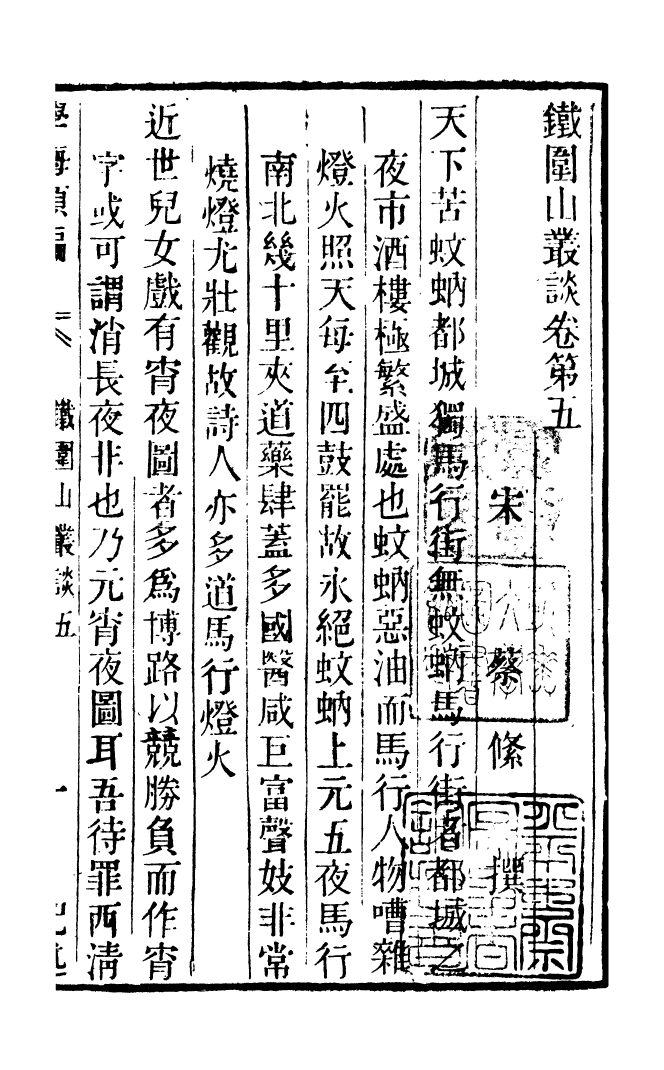 鐵圍山叢談卷第五
宋 蔡絛 撰
天下苦蚊蚋都城獨馬行街無蚊蚋馬行街者都城之
夜市酒樓極繁盛處也蚊蚋惡油而馬行人物嘈雜
燈火照天每至四鼓罷故永絕蚊蚋上元五夜馬行
南北幾十里夾道藥肆蓋多國醫咸巨富聲妓非常
燒燈尤壯觀故詩人亦多道馬行燈火
近世兒女戲有宵夜圖者多為博路以競勝負而作宵
字或可謂消長夜非也乃元宵夜圖耳吾待罪西清
學海類編 鐵圍山叢談五 一